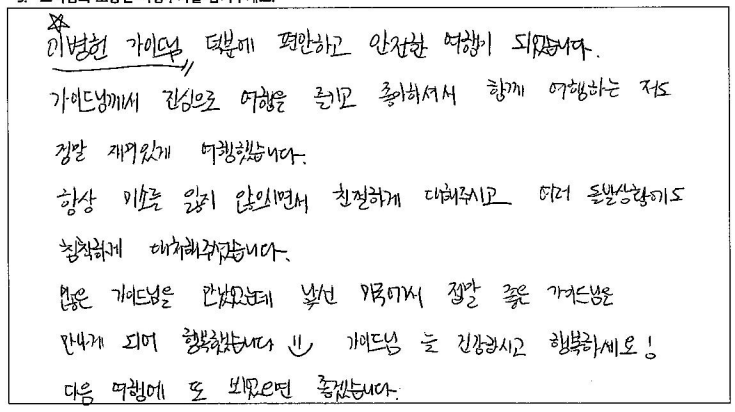 이병헌 가이드님 덕분에 편안하고 안전한 여행이 되었습니다.
가이드님께서 진심으로 여행을 즐기고 좋아하셔서 함께 여행하는 저도
정말 재미있게 여행했습니다.
항상 미소를 잃지 않으시면서 친절하게 대해주시고 여러 돌발상황에도
침착하게 대처해주셨습니다.
많은 가이드님을 만났었는데 낯선 외국에서 정말 좋은 가이드님을
만나게 되어 행복했습니다 가이드님 늘 건강하시고 행복하세요!
다음 여행에 또 뵈었으면 좋겠습니다.